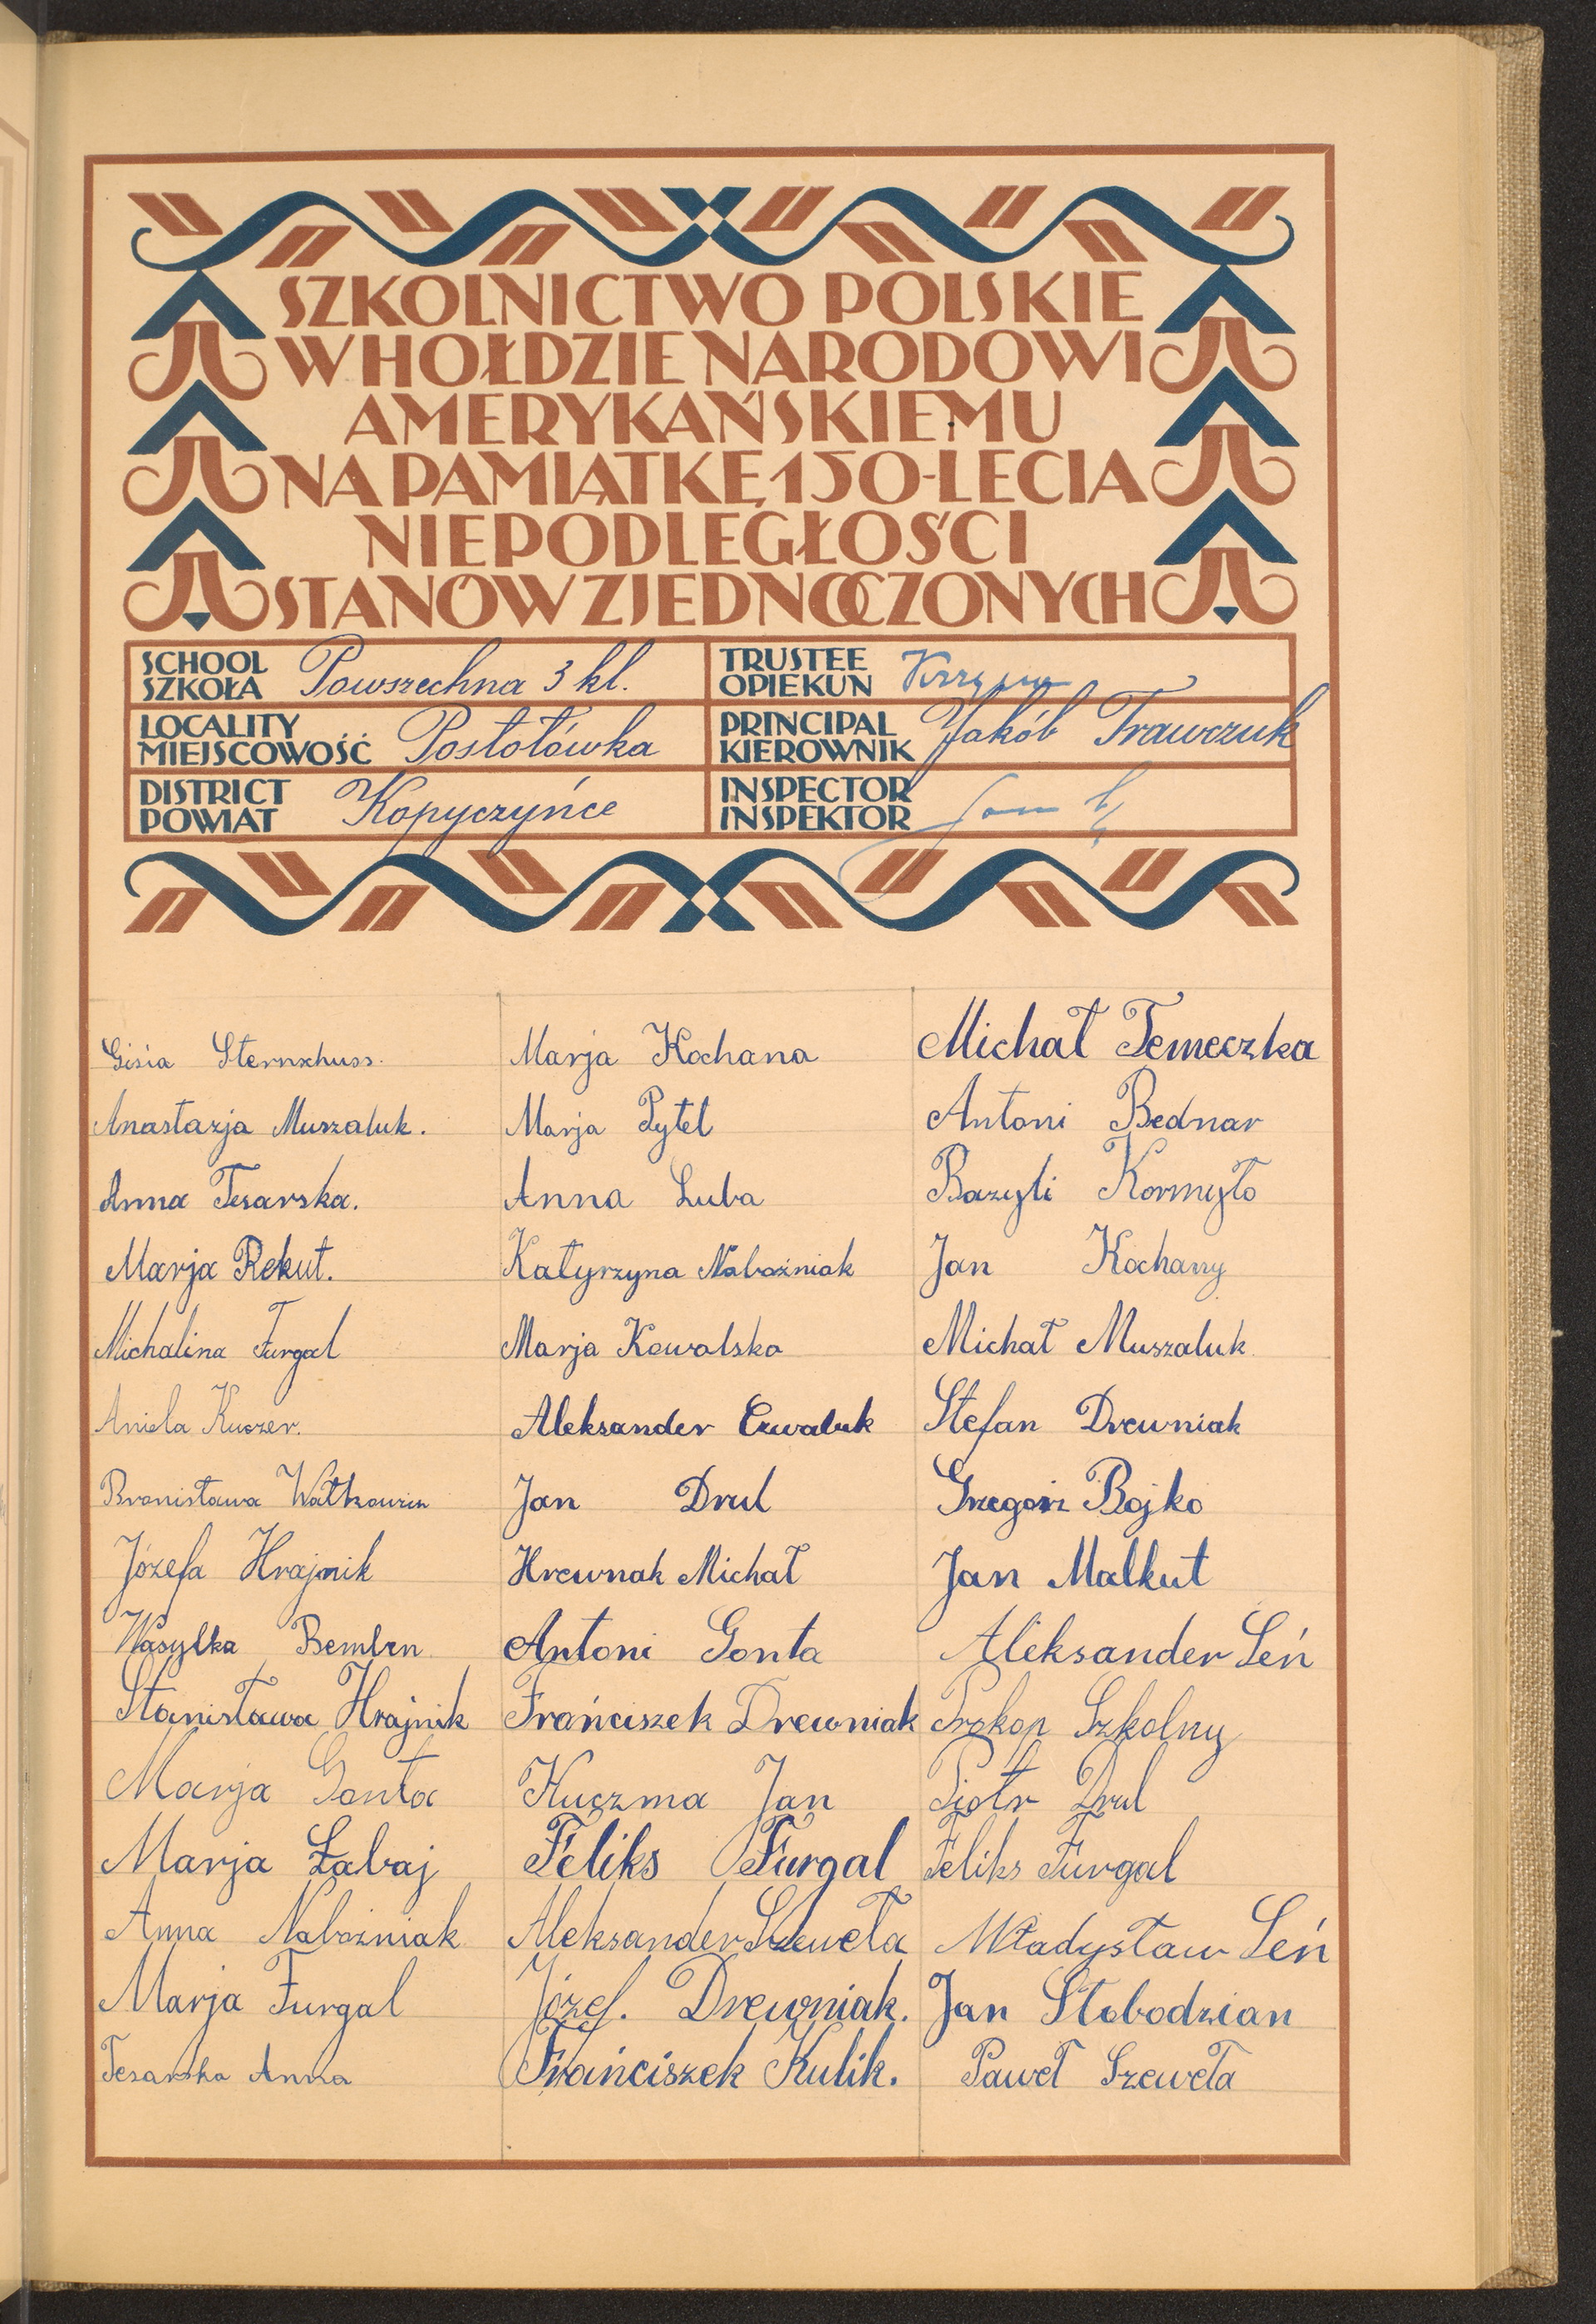 SZKOLNICTWO POLSKIE
W HOŁDZIE NARODOWI
AMERYKAŃSKIEMU
NA PAMIĄTKĘ 150-LECIA
NIEPODLEGŁOŚCI
STANÓW ZJEDNOCZONYCH
SCHOOL
SZKOŁA Powszechna 3 kl.
TRUSTEE
OPIEKUN
LOCALITY
MIEJSCOWOŚĆ Postołówka
PRINCIPAL
KIEROWNIK Jakób Trawczuk
DISTRICT
POWIAT Kopyczyńce
INSPECTOR
INSPEKTOR
Gisia Sternschuss.
Anastazja Muszaluk.
Anna Tesarska.
Marja Rekut.
Michalina Furgal
Aniela Kuczer.
Bronisława
Józefa Hrajnik
Wasylka Bemben
Stanisława Hrajnik
Marja Gonta
Marja Łabaj
Anna Nabożniak
Marja Furgal
Tesarska Anna
Marja Kochana
Marja Pytel
Anna Luba
Katyrzyna Nabożniak
Marja Kowalska
Aleksander Czwaluk
Jan Drul
Hrewnak Michał
Antoni Gonta
Frańciszek Drewniak
Kuczma Jan
Feliks Furgal
Aleksander Szeweła
Józef. Drewniak.
Frańciszek Kulik.
Michał Temeczka
Antoni Bednar
Bazyli Kormyło
Jan Kochany
Michał Muszaluk
Stefan Drewniak
Grzegorz Bojko
Jan Malkut
Aleksander Leń
Prokop Szkolny
Piotr Drul
Feliks Furgal
Władysław Leń
Jan Słobodzian
Paweł Szeweła